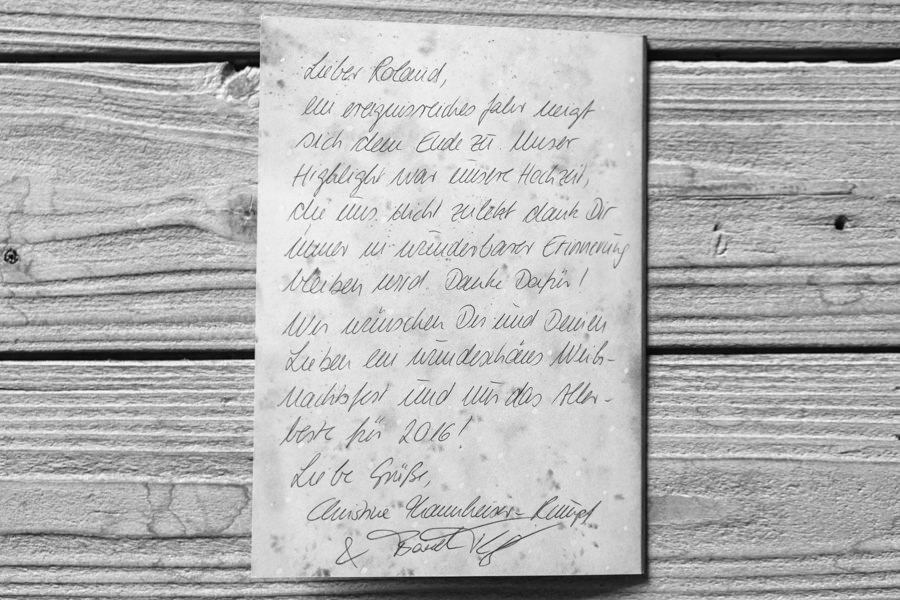 Lieber Roland,
ein ereignisreiches Jahr neigt
sich dem Ende zu. Unser
Highlight war unsere Hochzeit,
die uns nicht zuletzt dank Dir
immer in wunderbarer Erinnerung
bleiben wird. Danke Dafür!
Wir wünschen Dir und Deinen
Lieben ein wunderschönes Weih-
nachtsfest und nur das Aller-
beste für 2016!
Liebe Grüße,
Christine
&